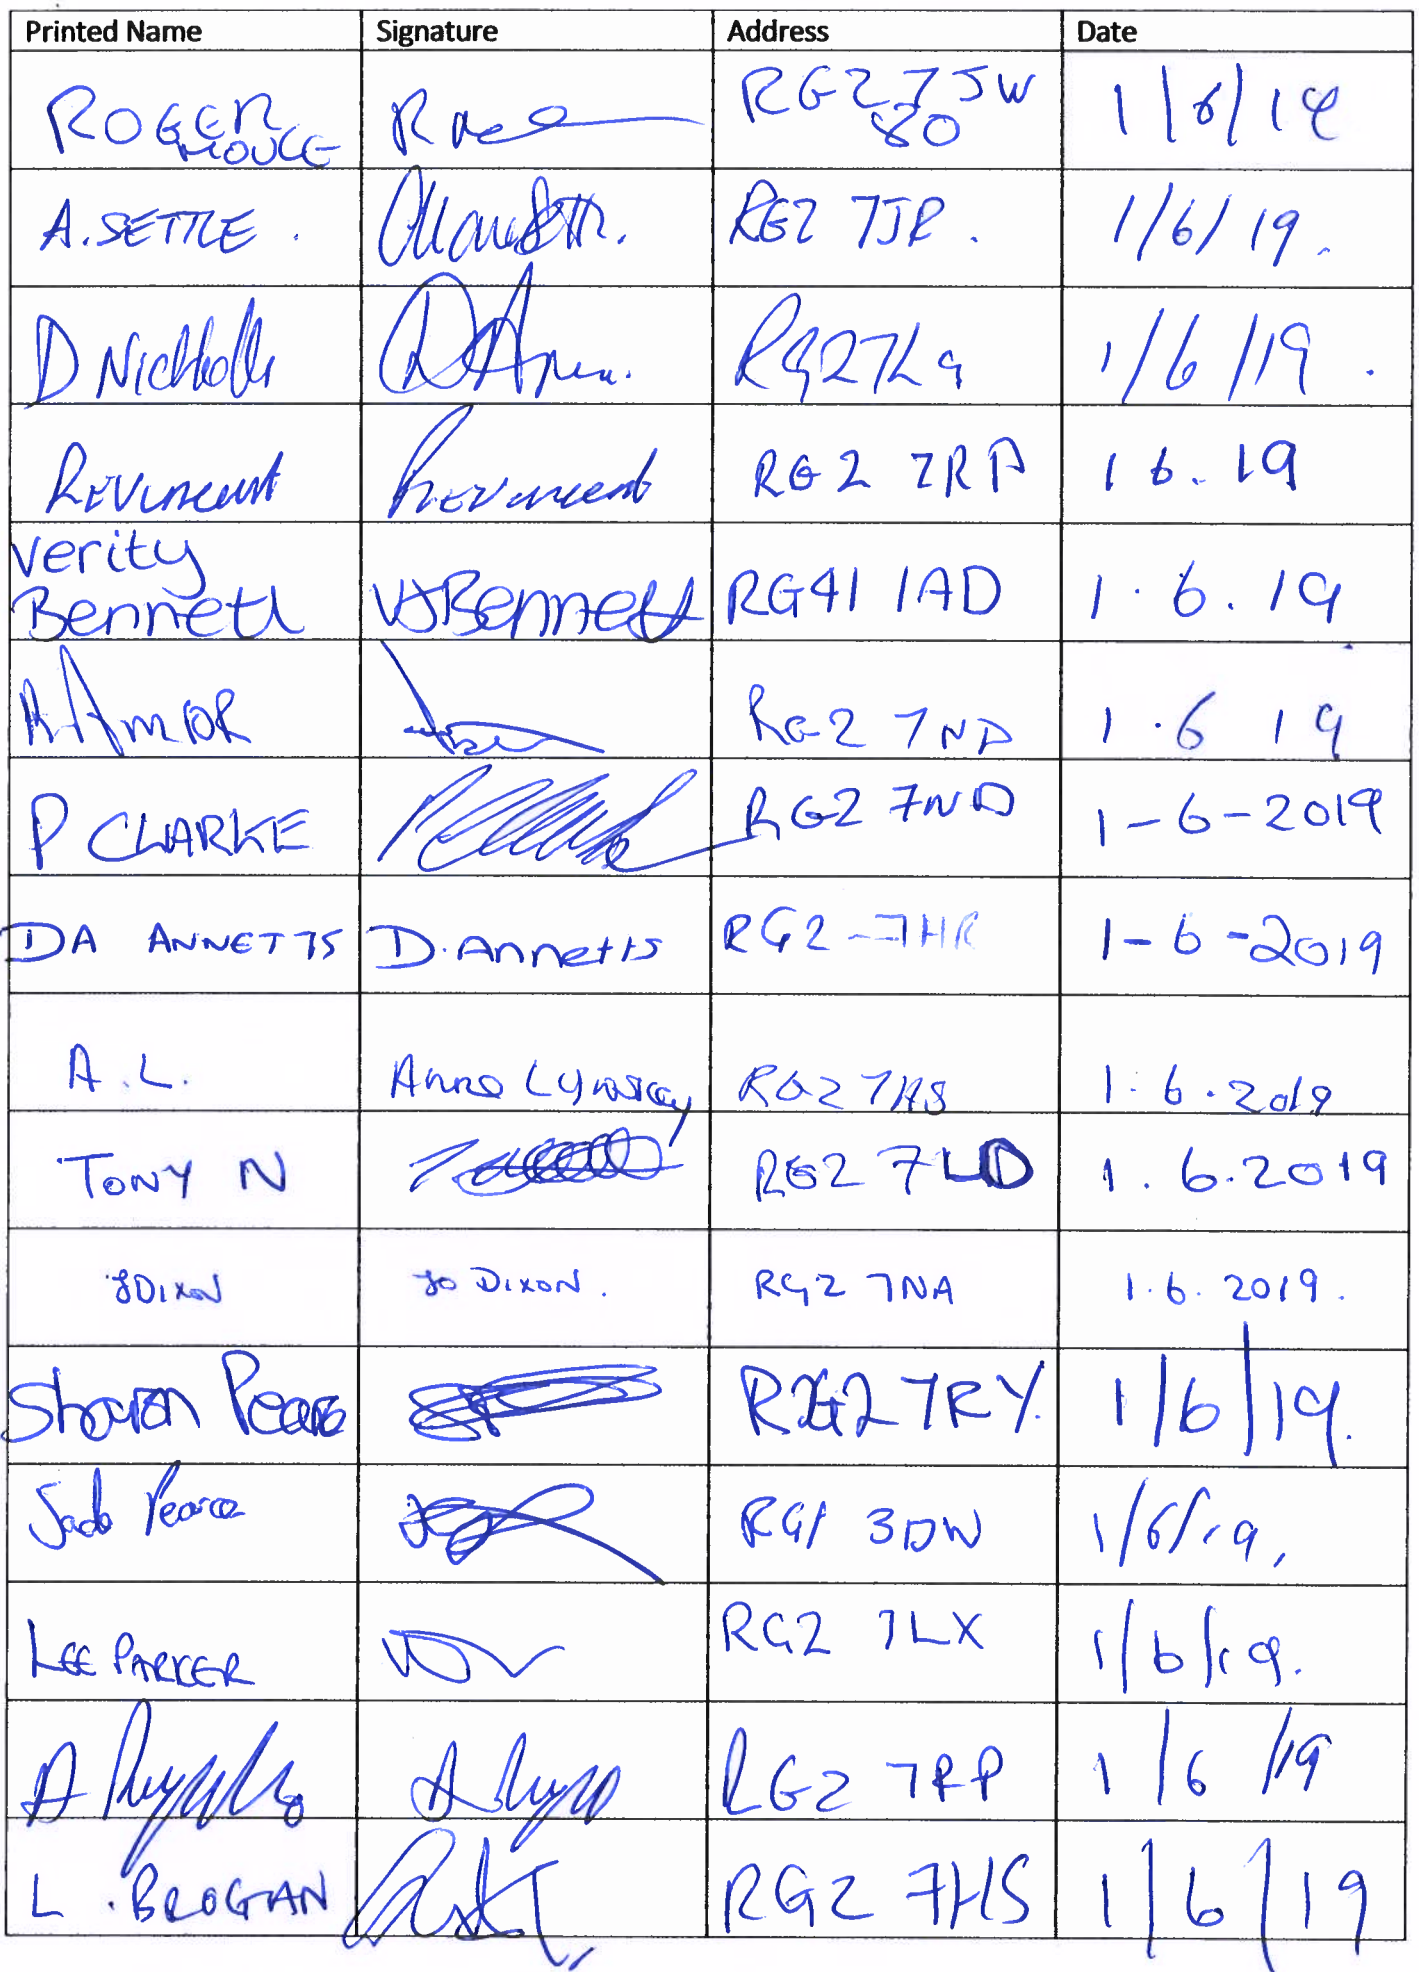 Printed Name Signature Address Date
ROGER RG2 7JW 1/6/19
MOULE 80
A. SETTLE. RG2 7JR. 1/6/19.
D Nicholls RG27LG 1/6/19.
REVincent REVincent RG2 7RP 1 6.19
Verity
Bennett VJBennett RG41 1AD 1.6.19
A AMOR RG2 7ND 1.6 19
P CLARKE RG2 7ND 1-6-2019
DA ANNETTS D. Annetts RG2-7HR 1-6-2019
A.L. Anne Lynskey RG2 7HS 1.6.2019
TONY N RG2 7LD 1.6.2019
JDIXON JO DIXON. RG2 7NA 1.6.2019.
Sharon Pearce RG2 7RY. 1/6/19.
Jade Pearce RG1 3DW 1/6/19.
LEE PARKER RG2 7LX 1/6/19.
A A RG2 7RP 1/6/19
L. BROGAN RG2 7HS 1/6/19